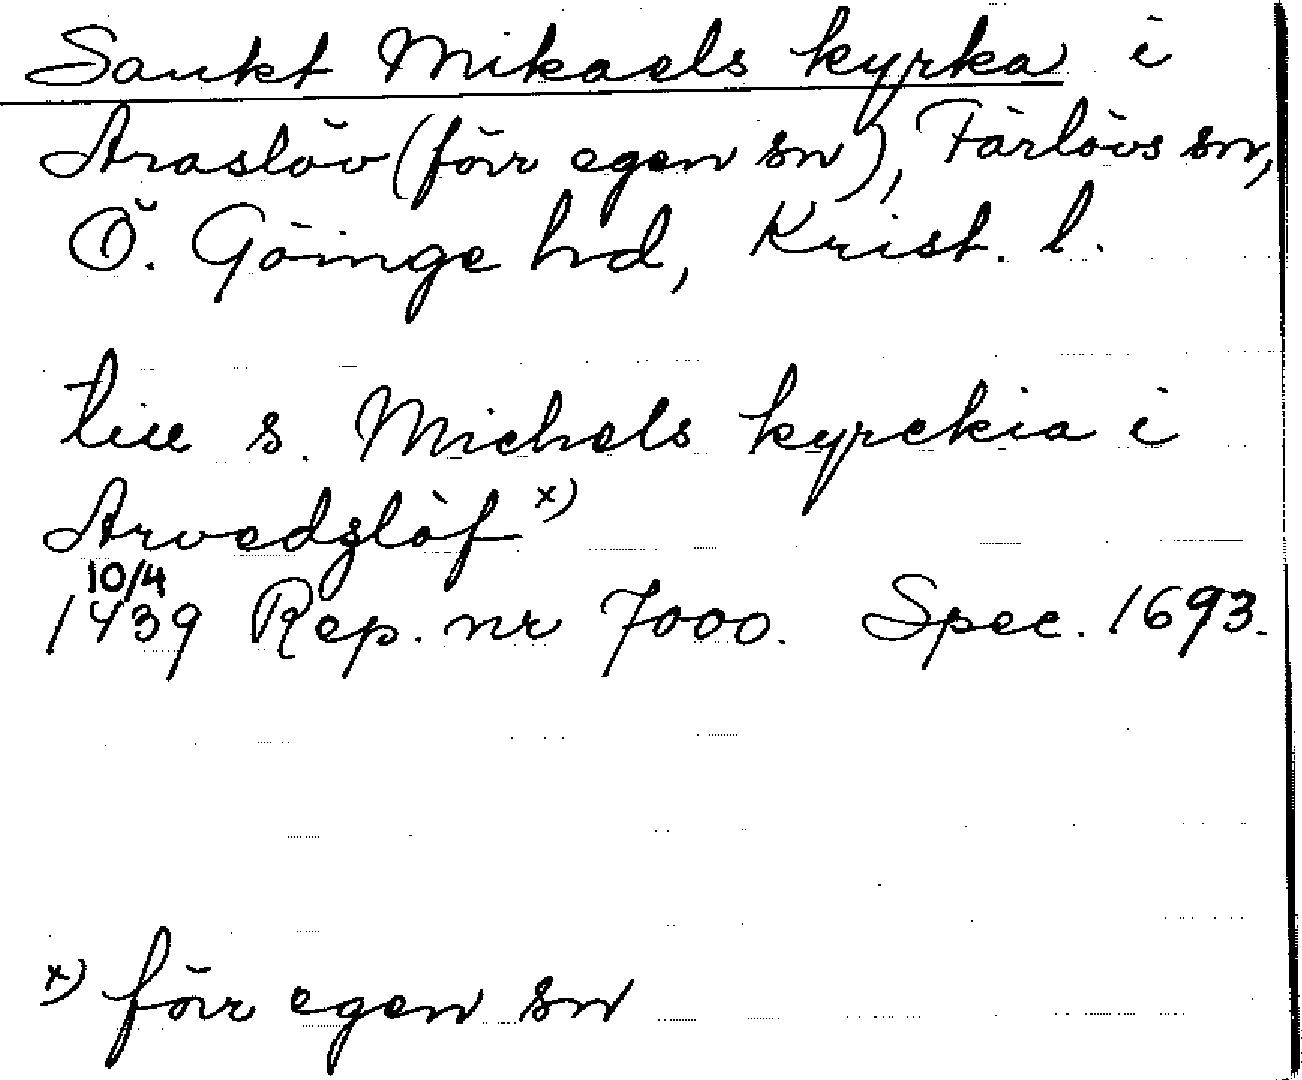 Sankt Mikaels kyrka i
Araslöv (förr egen sn), Färlövs sn,
Ö. Göinge hd, Krist. l.
till s. Michels kyrckia i
Arvedzløf x)
10/4
1439 Rep. nr 7000. Spec. 1693.
x) förr egen sn